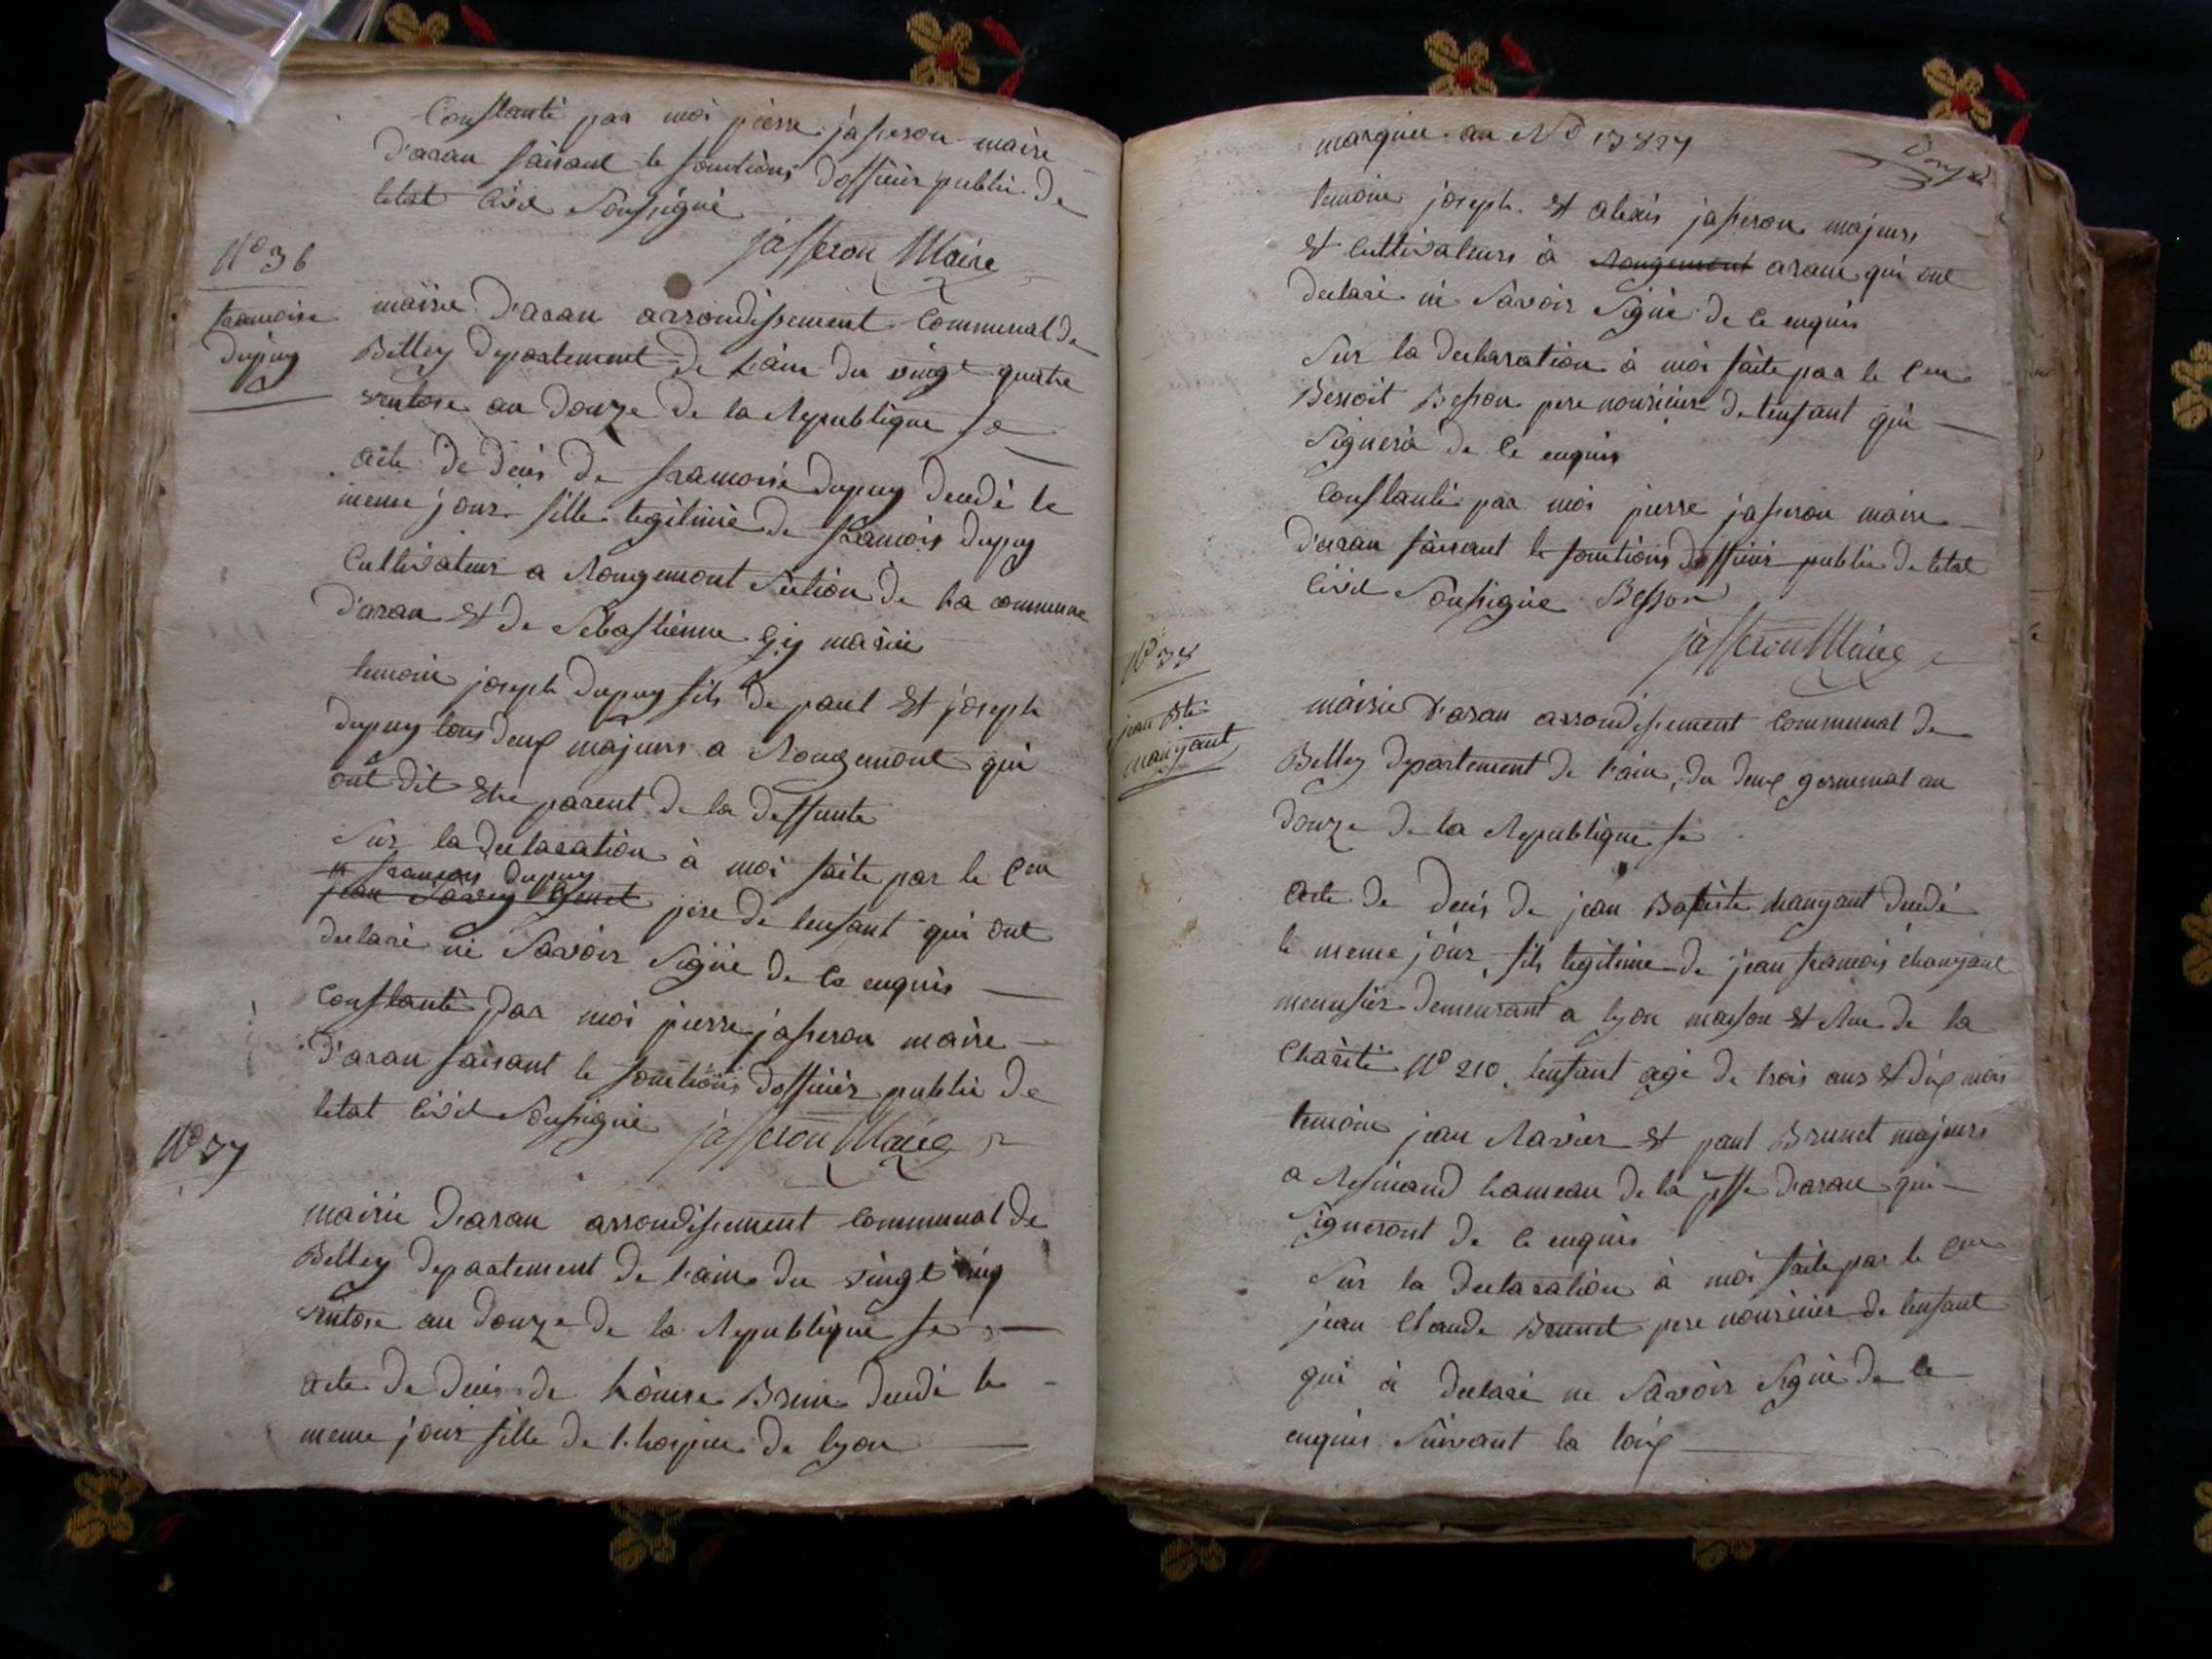 Constanté par moi pierre jasseron maire
d'aran faisant le fonctions dofficier public de
letat civil Soussigné
jasseron Maire
N° 36
francoise
dupuy
mairie d'aran arrondissement Communal de
Belley departement de l'ain du vingt quatre
ventose an douze de la Republique fse
acte de deces de francoise dupuy decedé le
meme jour fille legitimé de francois dupuy
Cultivateur a Rougemont Section de la commune
d'aran et de Sebastienne Gÿ mariés
temoin joseph dupuy fils de paul et joseph
dupuy tous deux majeurs a Rougemont qui
ont dit etre parent de la deffunte
Sur la declaration à moi faite par le Cen
francois dupuy
jean pere de lenfant qui ont
declaré ne Savoir Signé de ce enquis
Constanté par moi pierre jasseron maire
d'aran faisant le fonctions dofficier public de
letat civil Soussigné jasseron Maire
N° 37
mairie d'aran arrondissement communal de
Belley departement de l'ain du vingt cinq
ventose an douze de la Republique fse
acte de deces de Brun decedé le
meme jour fille de l'hospice de lyon
marquée au N° 13827
Douze
temoin joseph et alexis jasseron majeurs
et cultivateurs à Rougemont aran qui ont
declaré ne Savoir Signé de ce enquis
Sur la declaration à moi faite par le Cen
Benoit Besson pere nouricier de lenfant qui
Signera de ce enquis
Constanté par moi pierre jasseron maire
d'aran faisant le fonctions dofficier public de letat
civil Soussigné Besson
jasseron Maire
N° 38
jean bte
manyant
mairie d'aran arrondissement communal de
Belley departement de l'ain, du deux germinal an
douze de la Republique fse
acte de deces de jean Baptiste decedé
le meme jour, fils legitime de jean francois
menusier demeurant a lyon maison et Rue de la
Charité N° 210, lenfant agé de trois ans et dix mois
temoin jean Ravier et paul Brunet majeurs
a Resinand hameau de la d'aran qui
Signeront de ce enquis
Sur la declaration à moi faite par le Cen
jean Claude Brunet pere nouricier de lenfant
qui à declaré ne Savoir Signé de ce
enquis Suivant la loix